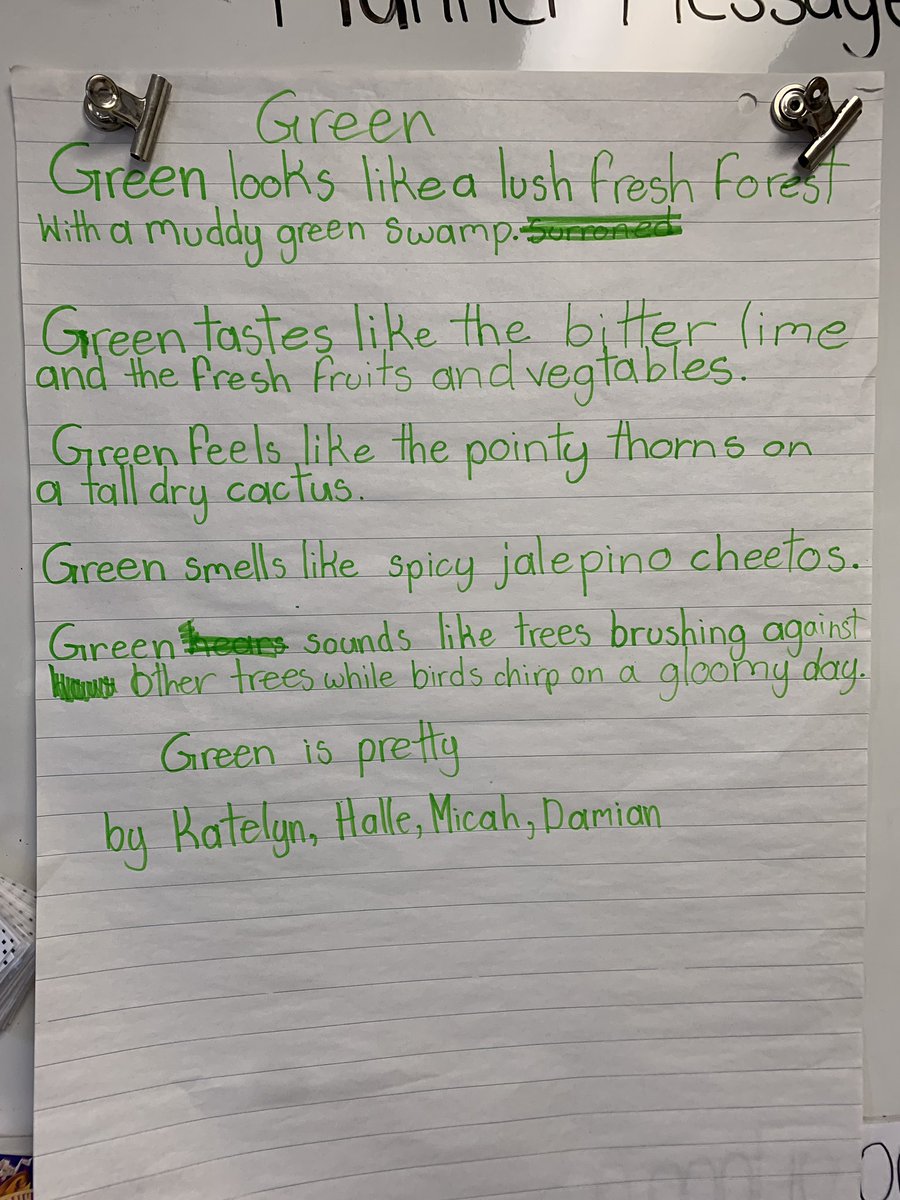 Planner Message
Green
Green looks like a lush fresh forest
With a muddy green swamp. surroned
Green tastes like the bitter lime
and the fresh fruits and vegtables.
Green feels like the pointy thorns on
a tall dry cactus.
Green smells like spicy jalepino cheetos.
Green hears sounds like trees brushing against
other trees while birds chirp on a gloomy day.
Green is pretty
by Katelyn, Halle, Micah, Damian